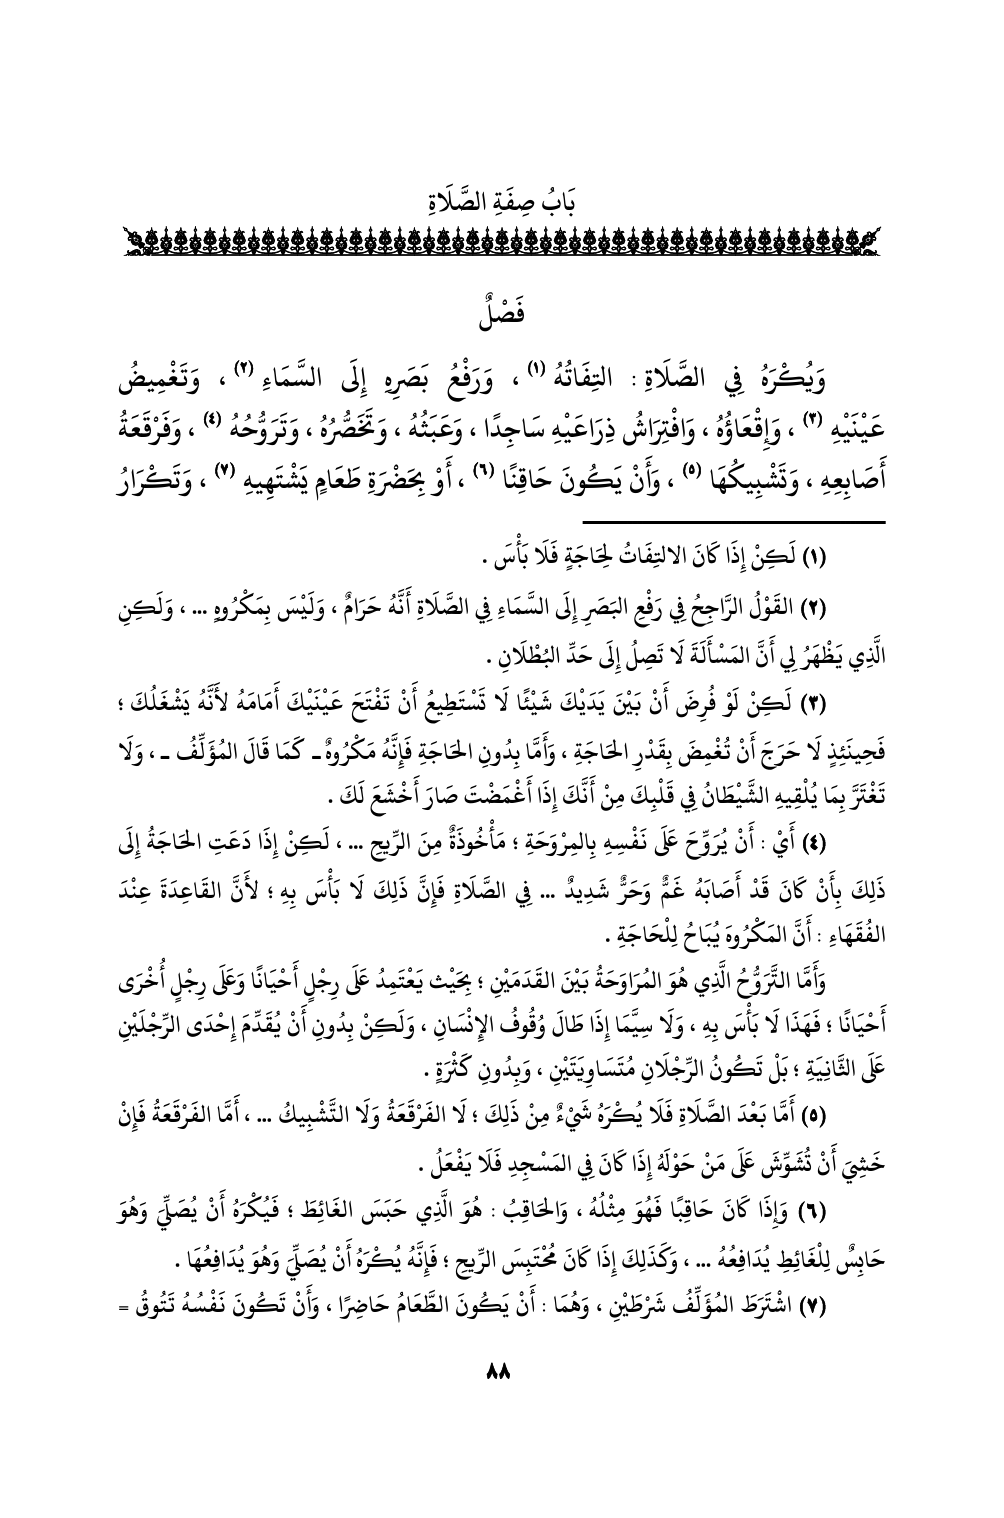 بَابُ صِفَةِ الصَّلَاةِ
فَصْلٌ
وَيُكْرَهُ فِي الصَّلَاةِ : التِفَاتُهُ (١) ، وَرَفْعُ بَصَرِهِ إِلَى السَّمَاءِ (٢) ، وَتَغْمِيضُ
عَيْنَيْهِ (٣) ، وَإِقْعَاؤُهُ ، وَافْتِرَاشُ ذِرَاعَيْهِ سَاجِدًا ، وَعَبَثُهُ ، وَتَخَصُّرُهُ ، وَتَرَوُّحُهُ (٤) ، وَفَرْقَعَةُ
أَصَابِعِهِ ، وَتَشْبِيكُهَا (٥) ، وَأَنْ يَكُونَ حَاقِنًا (٦) ، أَوْ بِحَضْرَةِ طَعَامٍ يَشْتَهِيهِ (٧) ، وَتَكْرَارُ
(١) لَكِنْ إِذَا كَانَ الالتِفَاتُ لِحَاجَةٍ فَلَا بَأْسَ .
(٢) القَوْلُ الرَّاجِحُ فِي رَفْعِ البَصَرِ إِلَى السَّمَاءِ فِي الصَّلَاةِ أَنَّهُ حَرَامٌ ، وَلَيْسَ بِمَكْرُوهٍ ... ، وَلَكِنِ
الَّذِي يَظْهَرُ لِي أَنَّ المَسْأَلَةَ لَا تَصِلُ إِلَى حَدِّ البُطْلَانِ .
(٣) لَكِنْ لَوْ فُرِضَ أَنْ بَيْنَ يَدَيْكَ شَيْئًا لَا تَسْتَطِيعُ أَنْ تَفْتَحَ عَيْنَيْكَ أَمَامَهُ لأَنَّهُ يَشْغَلُكَ ؛
فَحِينَئِذٍ لَا حَرَجَ أَنْ تُغْمِضَ بِقَدْرِ الحَاجَةِ ، وَأَمَّا بِدُونِ الحَاجَةِ فَإِنَّهُ مَكْرُوهٌ ـ كَمَا قَالَ المُؤَلِّفُ ـ ، وَلَا
تَغْتَرَّ بِمَا يُلْقِيهِ الشَّيْطَانُ فِي قَلْبِكَ مِنْ أَنَّكَ إِذَا أَغْمَضْتَ صَارَ أَخْشَعَ لَكَ .
(٤) أَيْ : أَنْ يُرَوِّحَ عَلَى نَفْسِهِ بِالمِرْوَحَةِ ؛ مَأْخُوذَةٌ مِنَ الرِّيحِ ... ، لَكِنْ إِذَا دَعَتِ الحَاجَةُ إِلَى
ذَلِكَ بِأَنْ كَانَ قَدْ أَصَابَهُ غَمٌّ وَحَرٌّ شَدِيدٌ ... فِي الصَّلَاةِ فَإِنَّ ذَلِكَ لَا بَأْسَ بِهِ ؛ لأَنَّ القَاعِدَةَ عِنْدَ
الفُقَهَاءِ : أَنَّ المَكْرُوهَ يُبَاحُ لِلْحَاجَةِ .
وَأَمَّا التَّرَوُّحُ الَّذِي هُوَ المُرَاوَحَةُ بَيْنَ القَدَمَيْنِ ؛ بِحَيْث يَعْتَمِدُ عَلَى رِجْلٍ أَحْيَانًا وَعَلَى رِجْلٍ أُخْرَى
أَحْيَانًا ؛ فَهَذَا لَا بَأْسَ بِهِ ، وَلَا سِيَّمَا إِذَا طَالَ وُقُوفُ الإِنْسَانِ ، وَلَكِنْ بِدُونِ أَنْ يُقَدِّمَ إِحْدَى الرِّجْلَيْنِ
عَلَى الثَّانِيَةِ ؛ بَلْ تَكُونُ الرِّجْلَانِ مُتَسَاوِيَتَيْنِ ، وَبِدُونِ كَثْرَةٍ .
(٥) أَمَّا بَعْدَ الصَّلَاةِ فَلَا يُكْرَهُ شَيْءٌ مِنْ ذَلِكَ ؛ لَا الفَرْقَعَةُ وَلَا التَّشْبِيكُ ... ، أَمَّا الفَرْقَعَةُ فَإِنْ
خَشِيَ أَنْ تُشَوِّشَ عَلَى مَنْ حَوْلَهُ إِذَا كَانَ فِي المَسْجِدِ فَلَا يَفْعَلُ .
(٦) وَإِذَا كَانَ حَاقِبًا فَهُوَ مِثْلُهُ ، وَالحَاقِبُ : هُوَ الَّذِي حَبَسَ الغَائِطَ ؛ فَيُكْرَهُ أَنْ يُصَلِّيَ وَهُوَ
حَابِسٌ لِلْغَائِطِ يُدَافِعُهُ ... ، وَكَذَلِكَ إِذَا كَانَ مُحْتَبِسَ الرِّيحِ ؛ فَإِنَّهُ يُكْرَهُ أَنْ يُصَلِّيَ وَهُوَ يُدَافِعُهَا .
(٧) اشْتَرَطَ المُؤَلِّفُ شَرْطَيْنِ ، وَهُمَا : أَنْ يَكُونَ الطَّعَامُ حَاضِرًا ، وَأَنْ تَكُونَ نَفْسُهُ تَتُوقُ =
٨٨